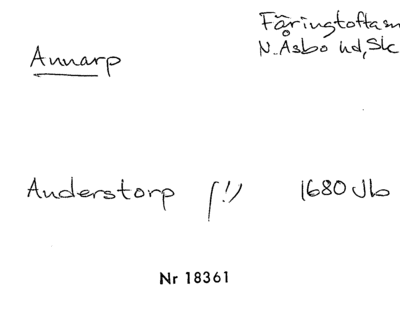 Färingtofta sn
N. Åsbo hd, Sk
Annarp
Anderstorp (!) 1680 Jb
Nr 18361